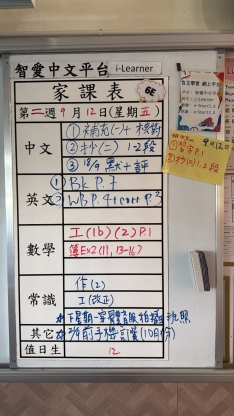 智愛中文平台 i-Learner
家課表 6E
第二週9月12日(星期五)
中文
① 補充(一)+
② 抄(二) 1-2段
③ 18/9 默+評
英文
① BK P.7
② WB P.4+corr P.3
數學
工(1b)(2) P.1
簿Ex2 (11, 13-16)
常識
作(2)
工(改正)
下星期一穿體育服拍攝班照
其它
前手機訂餐(10月份)
值日生
12
i-Learner
9月12日
① 習字P.1
② 抄(二)1.2段